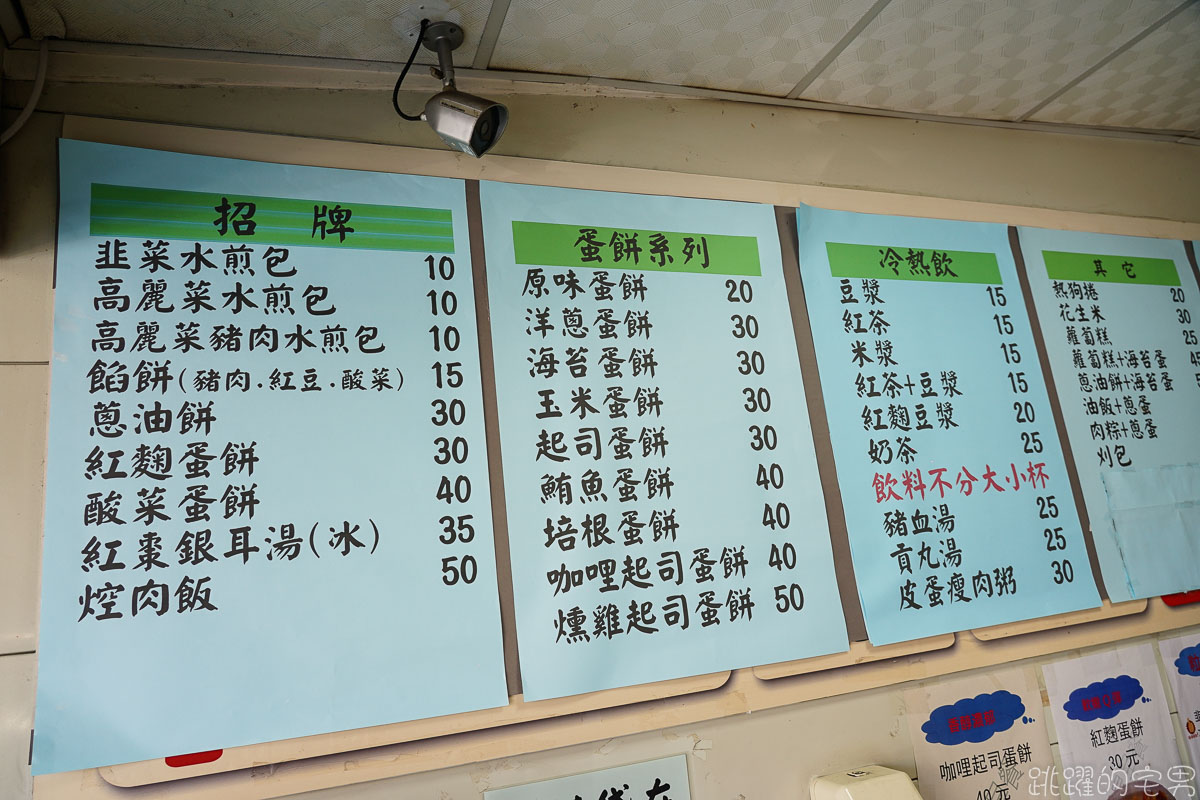 招牌
韭菜水煎包 10
高麗菜水煎包 10
高麗菜豬肉水煎包 10
餡餅(豬肉.紅豆.酸菜) 15
蔥油餅 30
紅麴蛋餅 30
酸菜蛋餅 40
紅棗銀耳湯(冰) 35
焢肉飯 50
蛋餅系列
原味蛋餅 20
洋蔥蛋餅 30
海苔蛋餅 30
玉米蛋餅 30
起司蛋餅 30
鮪魚蛋餅 40
培根蛋餅 40
咖哩起司蛋餅 40
燻雞起司蛋餅 50
冷熱飲
豆漿 15
紅茶 15
米漿 15
紅茶+豆漿 15
紅麴豆漿 20
奶茶 25
飲料不分大小杯
豬血湯 25
貢丸湯 25
皮蛋瘦肉粥 30
其它
熱狗捲 20
花生米 30
蘿蔔糕 25
蘿蔔糕+海苔蛋 45
蔥油餅+海苔蛋
油飯+蔥蛋
肉粽+蔥蛋
刈包
咖哩起司蛋餅
40元
紅麴蛋餅
30元
跳躍的宅男